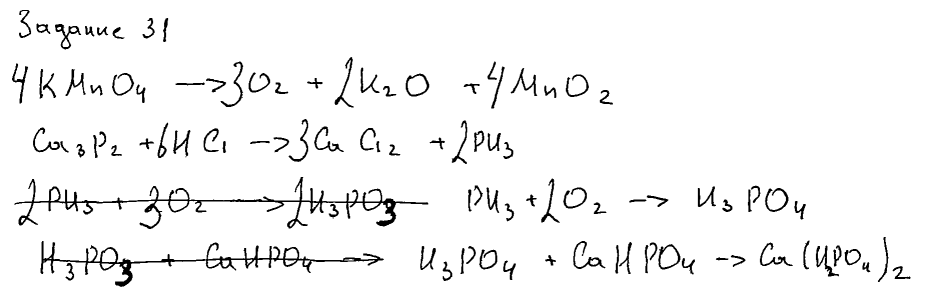 Задание 31
4KMnO₄ → 3O₂ + 2K₂O + 4MnO₂
Ca₃P₂ + 6HCl → 3CaCl₂ + 2PH₃
2PH₃ + 3O₂ → 2H₃PO₃ PH₃ + 2O₂ → H₃PO₄
H₃PO₃ + CaHPO₄ → H₃PO₄ + CaHPO₄ → Ca(H₂PO₄)₂